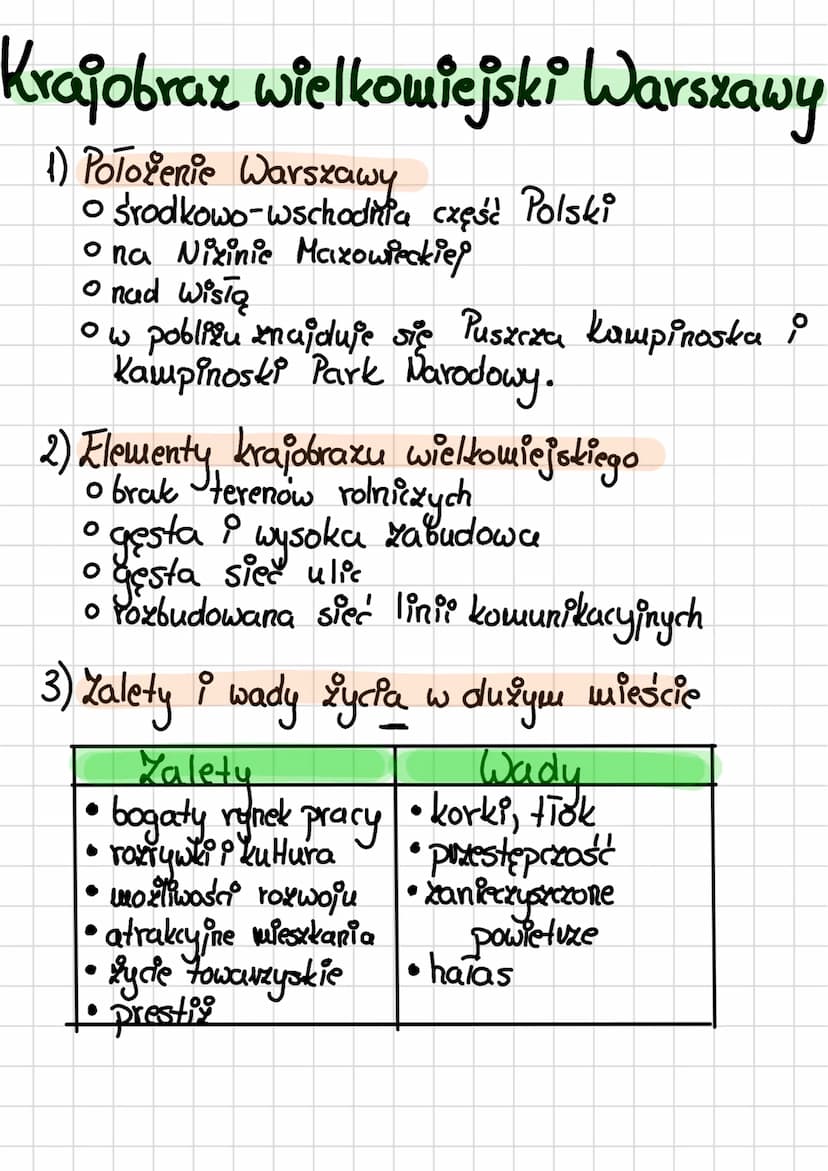 Krajobraz wielkomiejski Warszawy
1) Położenie Warszawy
o środkowo-wschodnia część Polski
o na Nizinie Mazowieckiej
o nad Wisłą
o w pobliżu znajduje się Puszcza Kampinoska i
Kampinoski Park Narodowy.
2) Elementy krajobrazu wielkomiejskiego
o brak terenów rolniczych
o gęsta i wysoka zabudowa
o gęsta sieć ulic
o rozbudowana sieć linii komunikacyjnych
3) Zalety i wady życia w dużym mieście
Zalety
• bogaty rynek pracy
• rozrywki i kultura
• możliwości rozwoju
• atrakcyjne mieszkania
• życie towarzyskie
• prestiż
Wady
• korki, tłok
• przestępczość
• zanieczyszczone
powietrze
• hałas